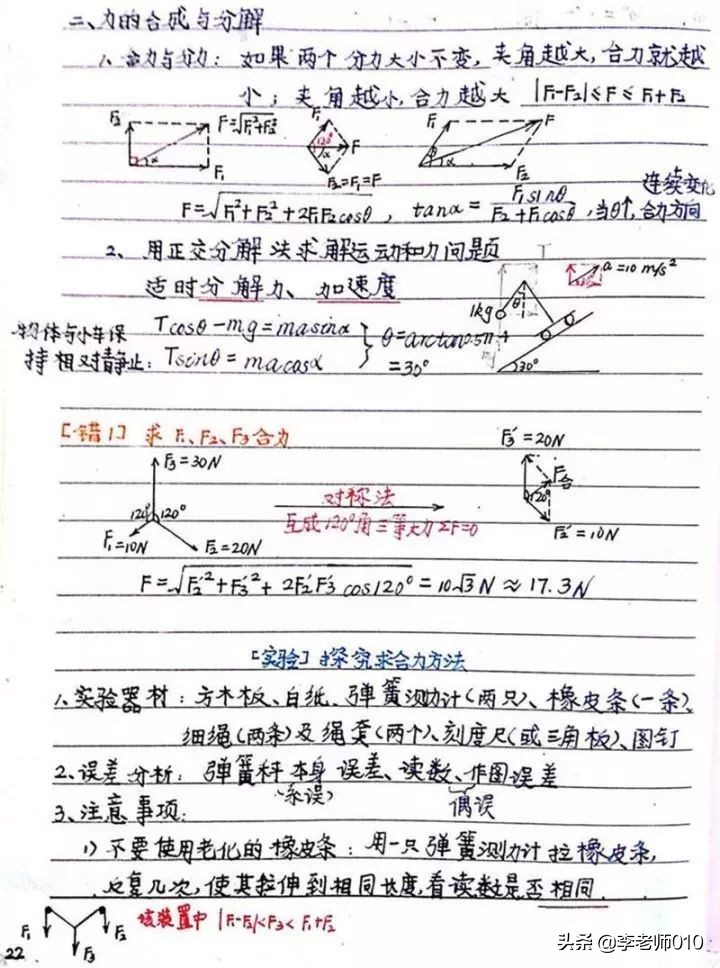 二、力的合成与分解
1、合力与分力：如果两个分力大小不变，夹角越大，合力就越
小；夹角越小，合力越大 |F₁-F₂|≤F≤F₁+F₂
F₂ F=√F₁²+F₂² α F₁
F₁ 120° α F F₂=F₁=F
F₁ F θ α F₂
F=√F₁²+F₂²+2F₁F₂cosθ，tanα=F₁sinθ/F₂+F₁cosθ，当θ↑，合力方向
连续变化
2、用正交分解法求解运动和力问题
适时分解力、加速度
T θ 1kg a=10m/s² 30°
物体与小车保
持相对静止：
Tcosθ-mg=masinα
Tsinθ=macosα
=30°
[错1] 求F₁、F₂、F₃合力
F₃=30N 120° 120° F₁=10N F₂=20N
对称法
互成120°角三等大力ΣF=0
F₃'=20N F合 120° F₂'=10N
F=√F₂'²+F₃'²+2F₂'F₃'cos120°=10√3N≈17.3N
[实验] 探究求合力方法
1、实验器材：方木板、白纸、弹簧测力计(两只)、橡皮条(一条)、
细绳(两条)及绳套(两个)、刻度尺(或三角板)、图钉
2、误差分析：弹簧秤本身误差、读数、作图误差
(系误) 偶误
3、注意事项：
1) 不要使用老化的橡皮条：用一只弹簧测力计拉橡皮条，
反复几次，使其拉伸到相同长度，看读数是否相同.
F₁ F₂ F₃ 该装置中 |F₁-F₂|<F₃<F₁+F₂
22
头条@李老师010